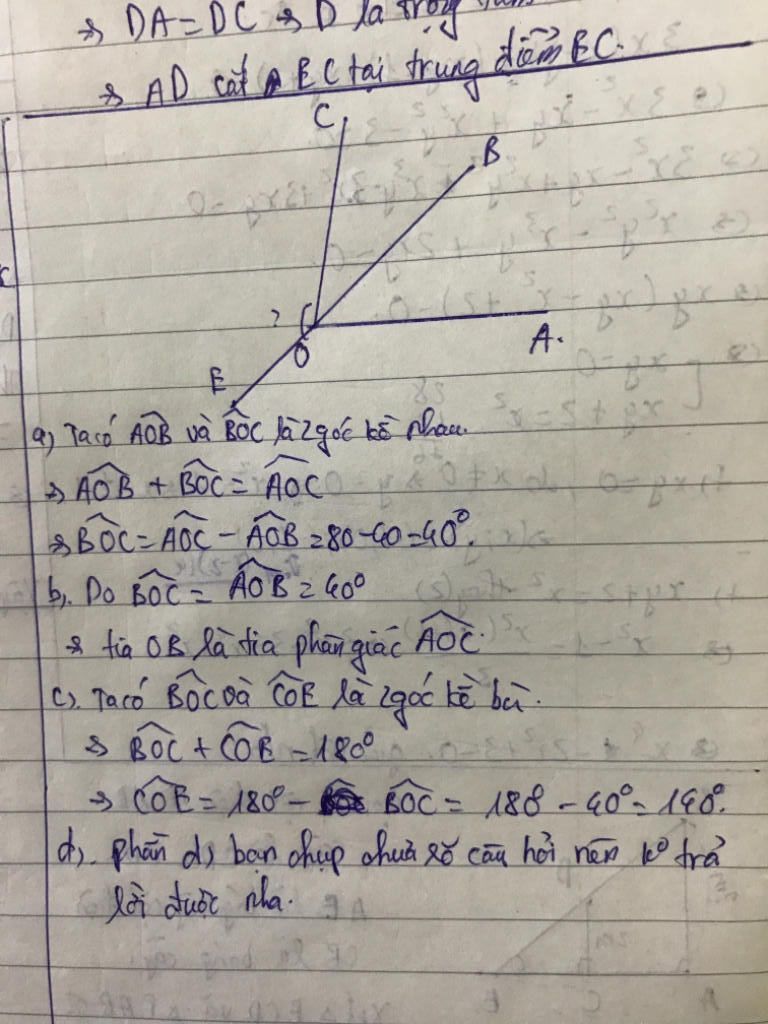 => DA = DC => D là trọng tâm
=> AD cắt EC tại trung điểm EC.
C
B
?
O
A.
E
a) Ta có AOB và BOC là 2 góc kề nhau.
=> AOB + BOC = AOC
=> BOC = AOC - AOB = 80 - 40 = 40°.
b). Do BOC = AOB = 40°
=> tia OB là tia phân giác AOC.
c). Ta có BOC và COE là 2 góc kề bù.
=> BOC + COE = 180°
=> COE = 180° - BOC = 180 - 40° = 140°.
d). phần d) bạn chụp chưa rõ câu hỏi nên k° trả
lời được nha.